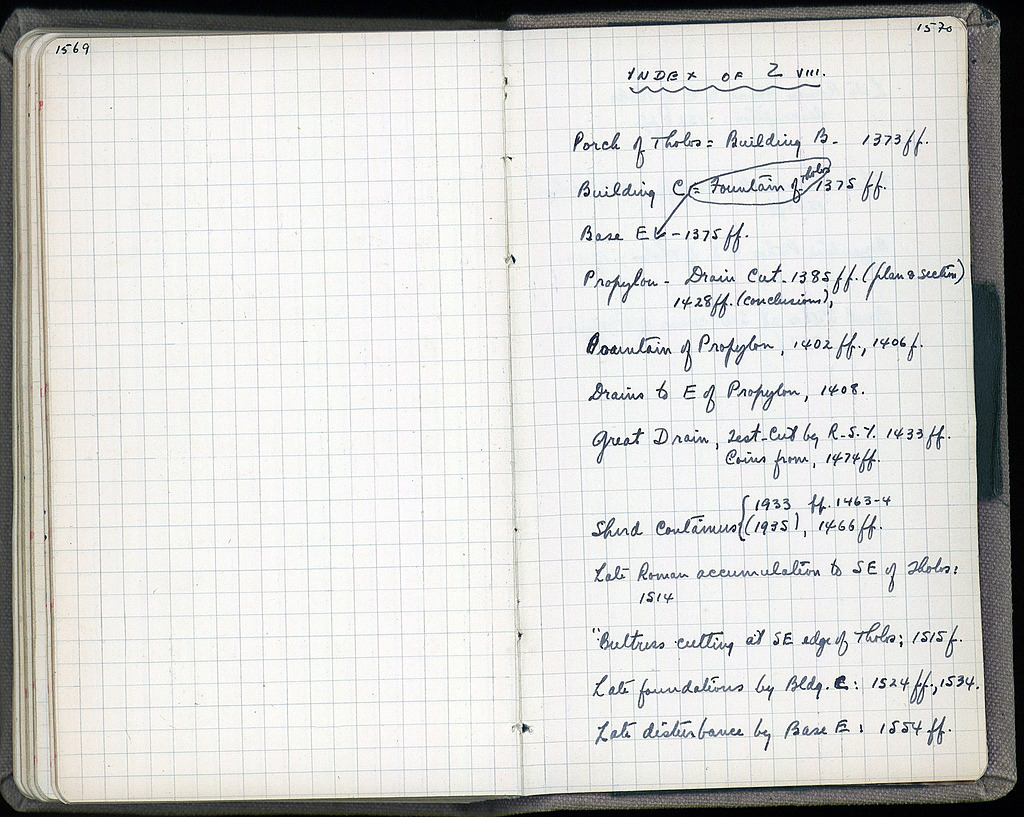 1569
1570
INDEX OF Z VIII.
Porch of Tholos = Building B - 1373 ff.
Building C = Fountain of Tholos 1375 ff.
Base E - 1375 ff.
Propylon - Drain Cut - 1385 ff. (plan & section)
1428 ff. (conclusions),
Fountain of Propylon, 1402 ff., 1406 f.
Drains to E of Propylon, 1408.
Great Drain, Test-Cut by R.S.Y. 1433 ff.
Coins from, 1474 ff.
1933 ff. 1463-4
Sherd Containers (1935), 1466 ff.
Late Roman accumulation to SE of Tholos:
1514
"Buttress cutting at SE edge of Tholos; 1515 f.
Late foundations by Bldg. C: 1524 ff., 1534.
Late disturbance by Base E: 1554 ff.